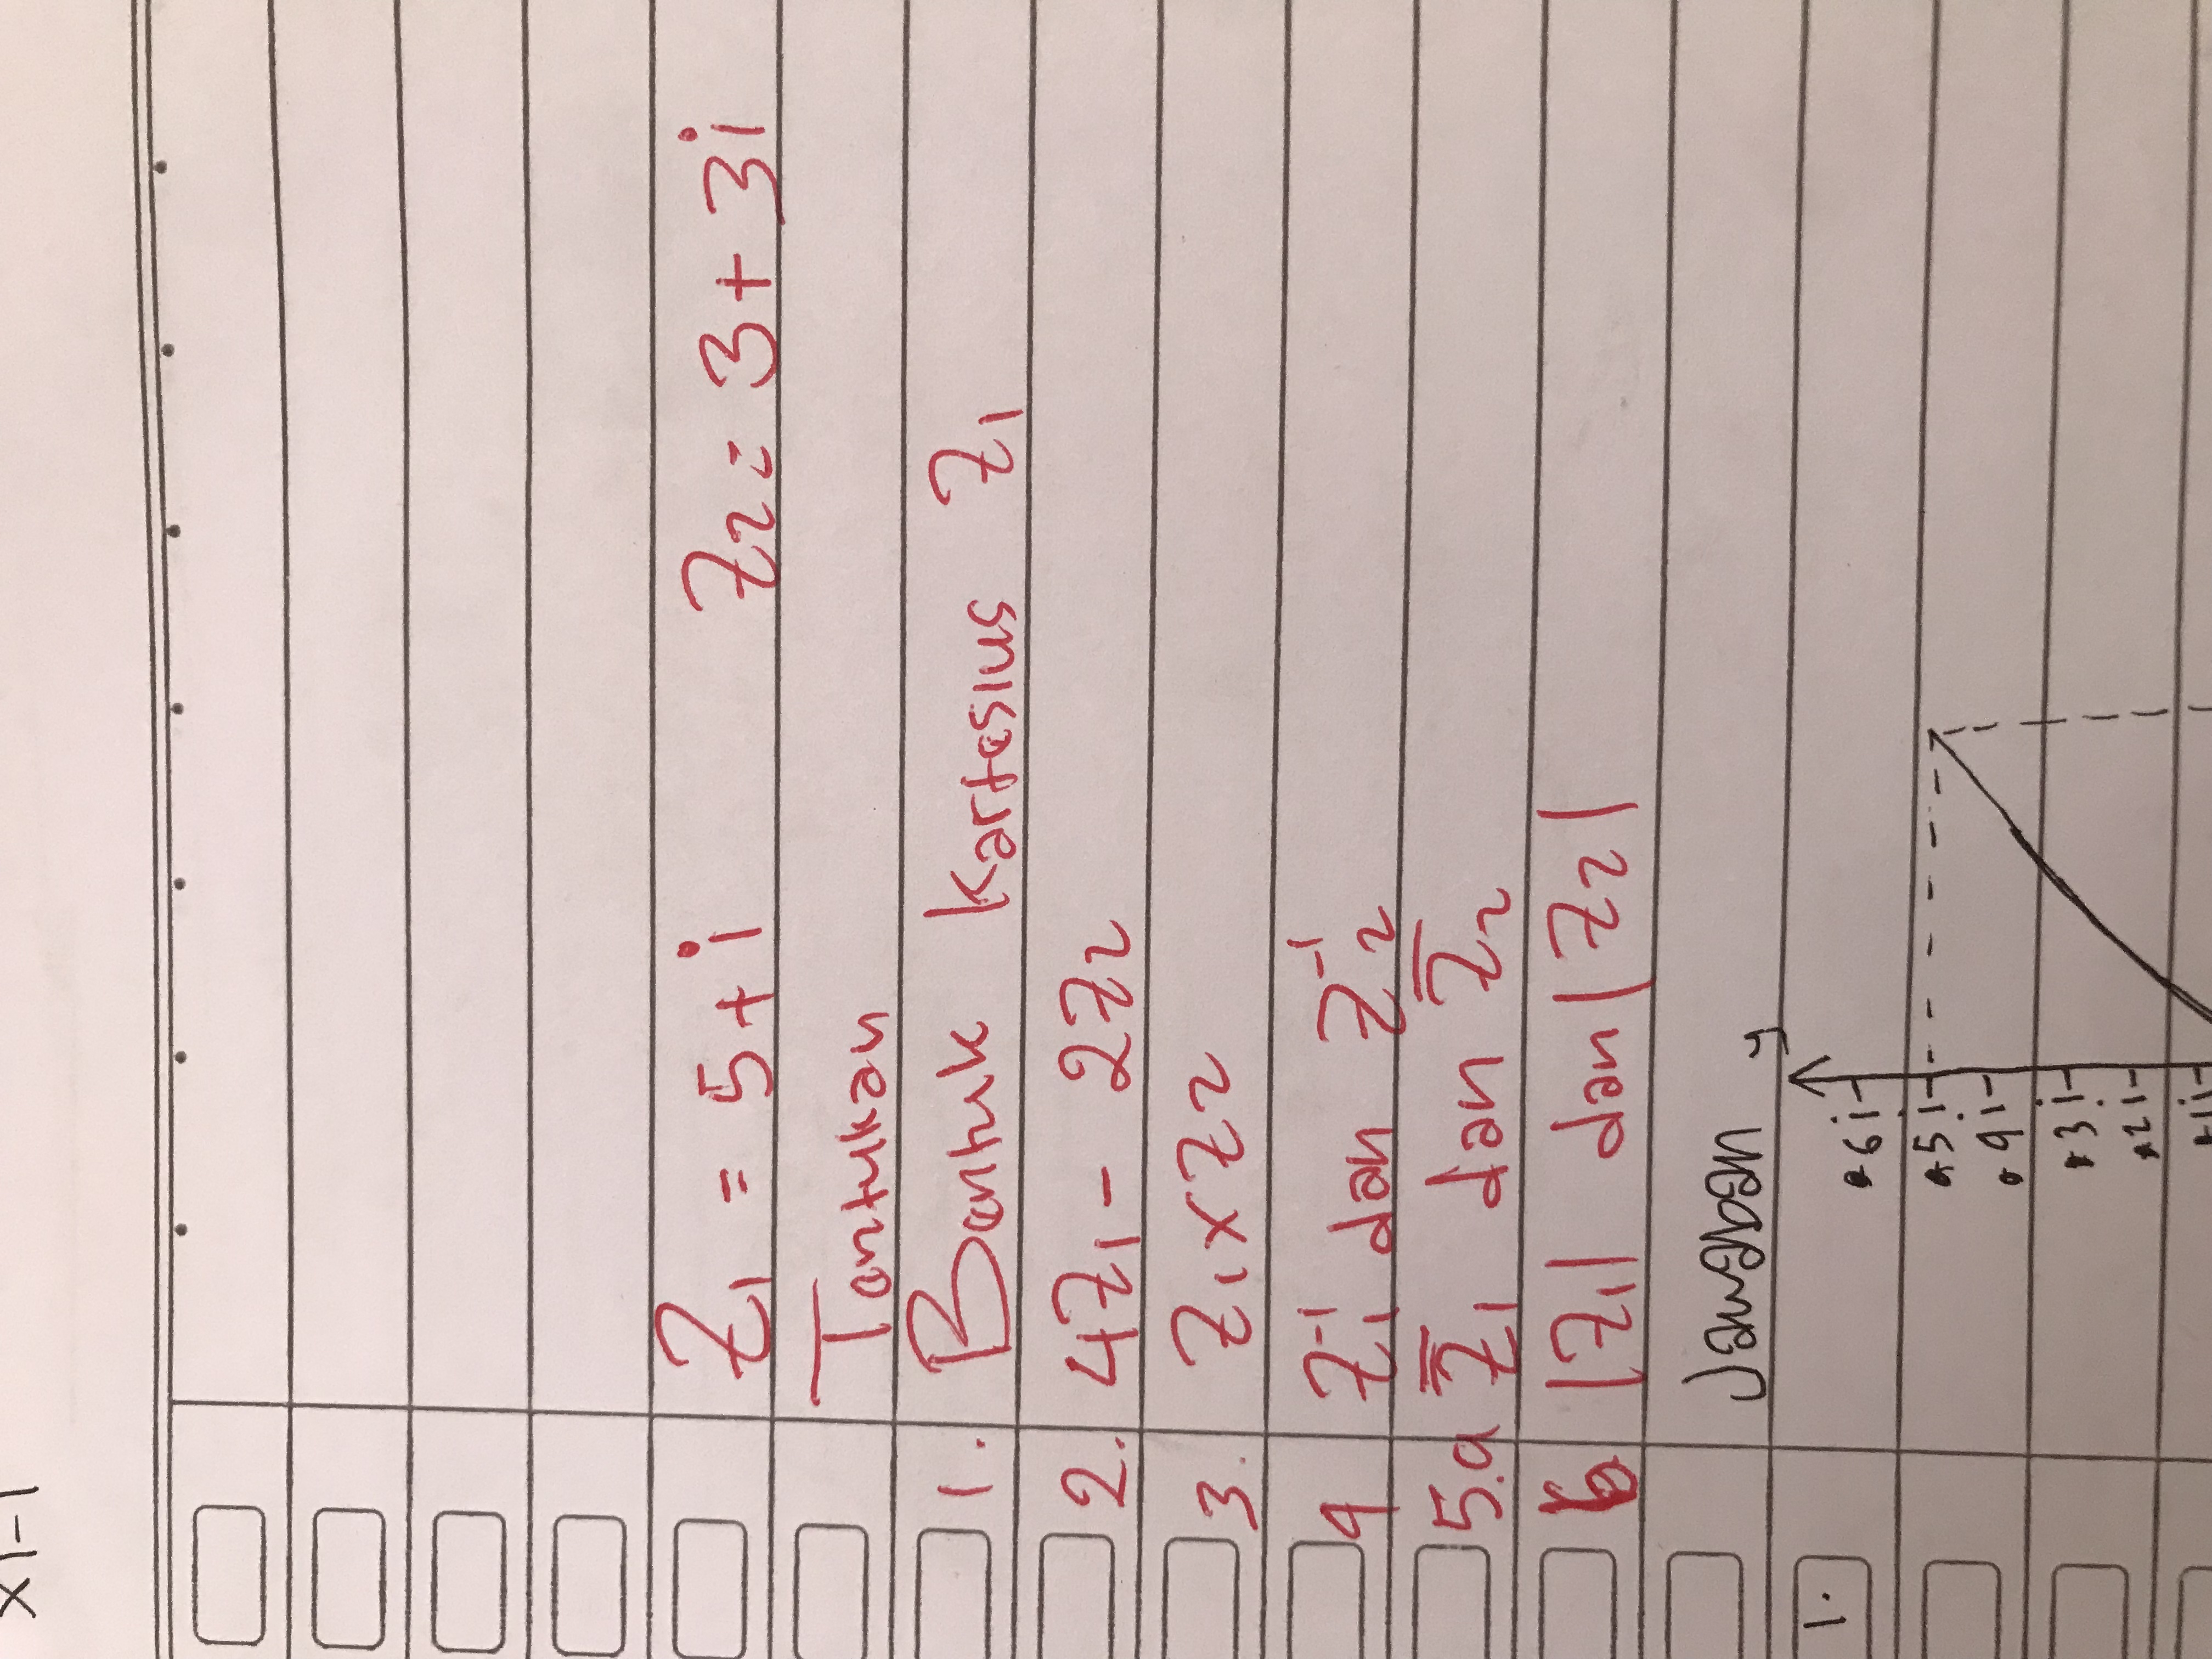 XI-1
Z₁ = 5+i Z₂ = 3+3i
Tentukan
1. Bentuk Kartesius Z₁
2. 4Z₁ - 2Z₂
3. Z₁ x Z₂
4 Z₁⁻¹ dan Z₂⁻¹
5.a Z̅₁ dan Z̅₂
b |Z₁| dan |Z₂|
Jawaban
y
1.
6i
5i
4i
3i
2i
1i